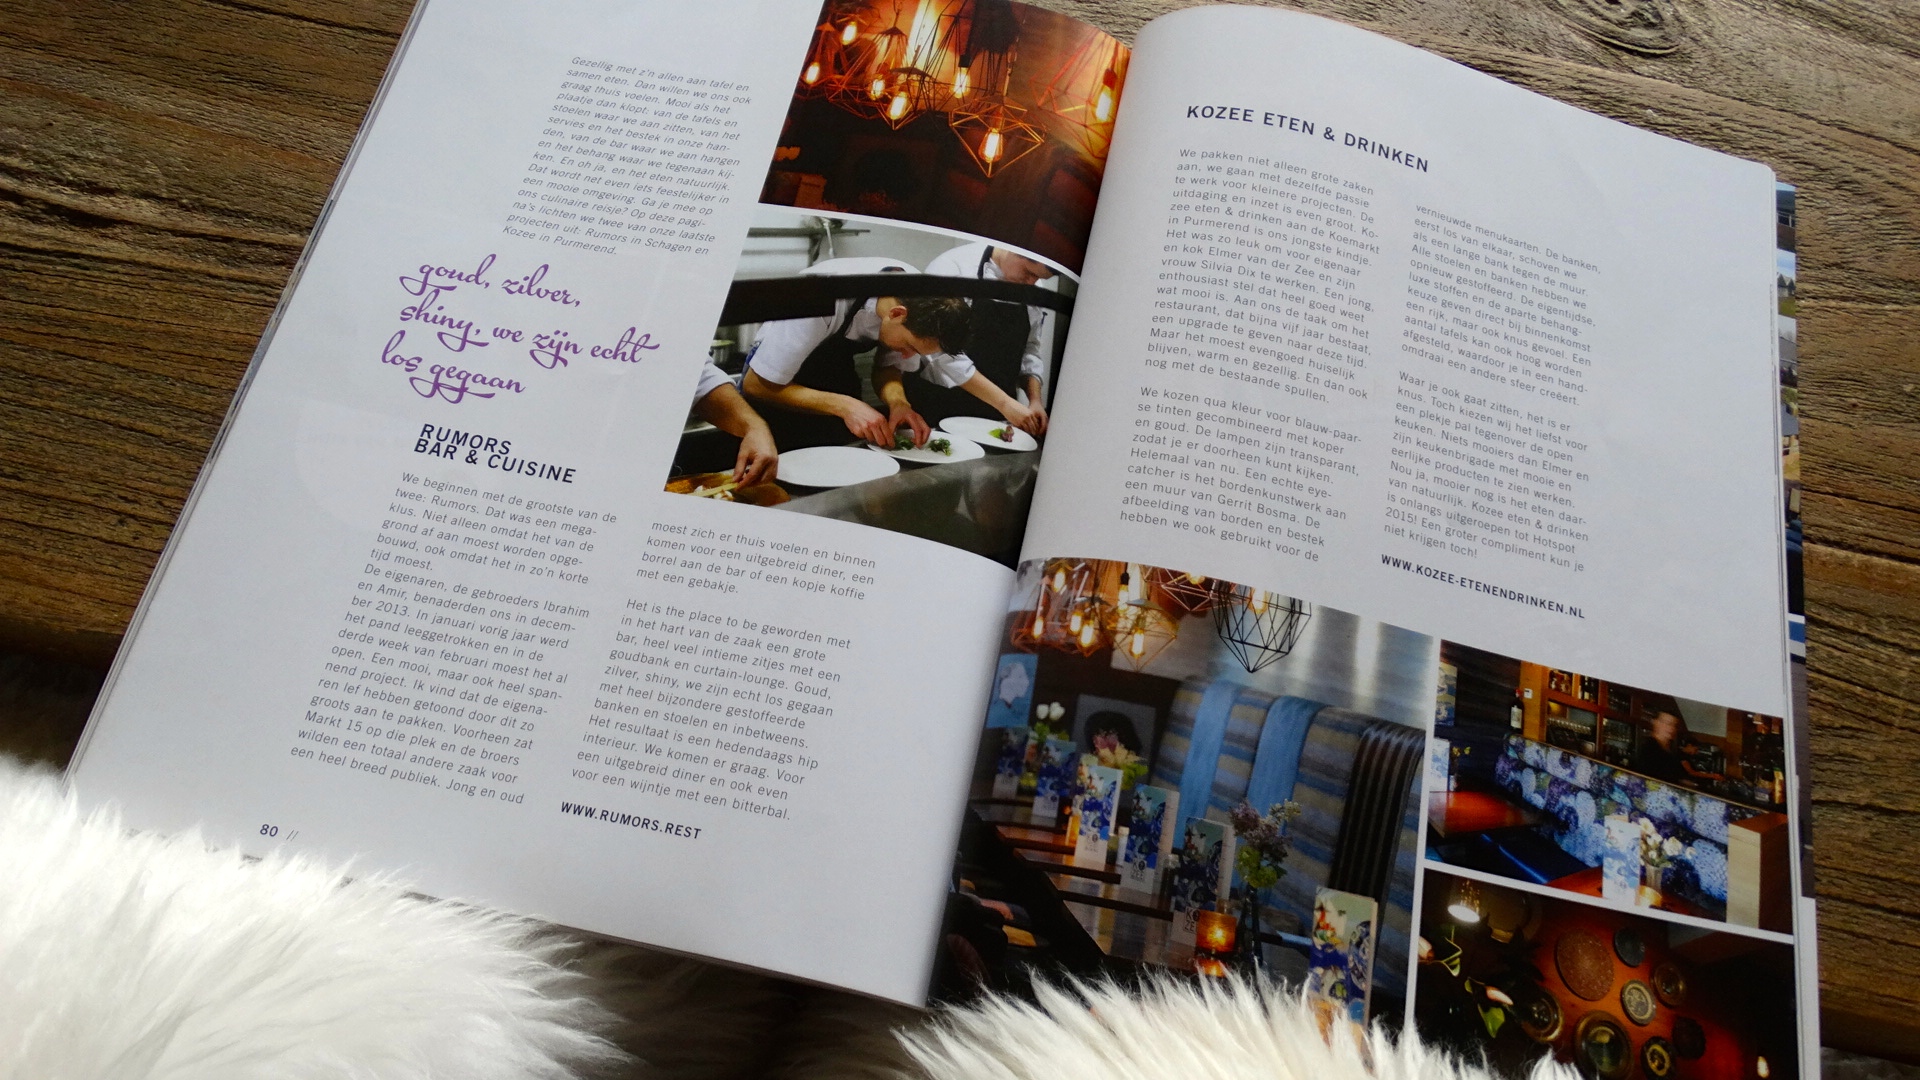 Gezellig met z'n allen aan tafel en
samen eten. Dan willen we ons ook
graag thuis voelen. Mooi als het
plaatje dan klopt: van de tafels en
stoelen waar we aan zitten, van het
servies en het bestek in onze han-
den, van de bar waar we aan hangen
en het behang waar we tegenaan kij-
ken. En oh ja, en het eten natuurlijk.
Dat wordt net even iets feestelijker in
een mooie omgeving. Ga je mee op
ons culinaire reisje? Op deze pagi-
na's lichten we twee van onze laatste
projecten uit: Rumors in Schagen en
Kozee in Purmerend.
goud, zilver,
shiny, we zijn echt
los gegaan
RUMORS
BAR & CUISINE
We beginnen met de grootste van de
twee: Rumors. Dat was een mega-
klus. Niet alleen omdat het van de
grond af aan moest worden opge-
bouwd, ook omdat het in zo'n korte
tijd moest.
De eigenaren, de gebroeders Ibrahim
en Amir, benaderden ons in decem-
ber 2013. In januari vorig jaar werd
het pand leeggetrokken en in de
derde week van februari moest het al
open. Een mooi, maar ook heel span-
nend project. Ik vind dat de eigena-
ren lef hebben getoond door dit zo
groots aan te pakken. Voorheen zat
Markt 15 op die plek en de broers
wilden een totaal andere zaak voor
een heel breed publiek. Jong en oud
moest zich er thuis voelen en binnen
komen voor een uitgebreid diner, een
borrel aan de bar of een kopje koffie
met een gebakje.
Het is the place to be geworden met
in het hart van de zaak een grote
bar, heel veel intieme zitjes met een
goudbank en curtain-lounge. Goud,
zilver, shiny, we zijn echt los gegaan
met heel bijzondere gestoffeerde
banken en stoelen en inbetweens.
Het resultaat is een hedendaags hip
interieur. We komen er graag. Voor
een uitgebreid diner en ook even
voor een wijntje met een bitterbal.
WWW.RUMORS.REST
80 //
KOZEE ETEN & DRINKEN
We pakken niet alleen grote zaken
aan, we gaan met dezelfde passie
te werk voor kleinere projecten. De
uitdaging en inzet is even groot. Ko-
zee eten & drinken aan de Koemarkt
in Purmerend is ons jongste kindje.
Het was zo leuk om voor eigenaar
en kok Elmer van der Zee en zijn
vrouw Silvia Dix te werken. Een jong,
enthousiast stel dat heel goed weet
wat mooi is. Aan ons de taak om het
restaurant, dat bijna vijf jaar bestaat,
een upgrade te geven naar deze tijd.
Maar het moest evengoed huiselijk
blijven, warm en gezellig. En dan ook
nog met de bestaande spullen.
We kozen qua kleur voor blauw-paar-
se tinten gecombineerd met koper
en goud. De lampen zijn transparant,
zodat je er doorheen kunt kijken.
Helemaal van nu. Een echte eye-
catcher is het bordenkunstwerk aan
een muur van Gerrit Bosma. De
afbeelding van borden en bestek
hebben we ook gebruikt voor de
vernieuwde menukaarten. De banken,
eerst los van elkaar, schoven we
als een lange bank tegen de muur.
Alle stoelen en banken hebben we
opnieuw gestoffeerd. De eigentijdse,
luxe stoffen en de aparte behang-
keuze geven direct bij binnenkomst
een rijk, maar ook knus gevoel. Een
aantal tafels kan ook hoog worden
afgesteld, waardoor je in een hand-
omdraai een andere sfeer creëert.
Waar je ook gaat zitten, het is er
knus. Toch kiezen wij het liefst voor
een plekje pal tegenover de open
keuken. Niets mooiers dan Elmer en
zijn keukenbrigade met mooie en
eerlijke producten te zien werken.
Nou ja, mooier nog is het eten daar-
van natuurlijk. Kozee eten & drinken
is onlangs uitgeroepen tot Hotspot
2015! Een groter compliment kun je
niet krijgen toch!
WWW.KOZEE-ETENENDRINKEN.NL
KO
ZEE